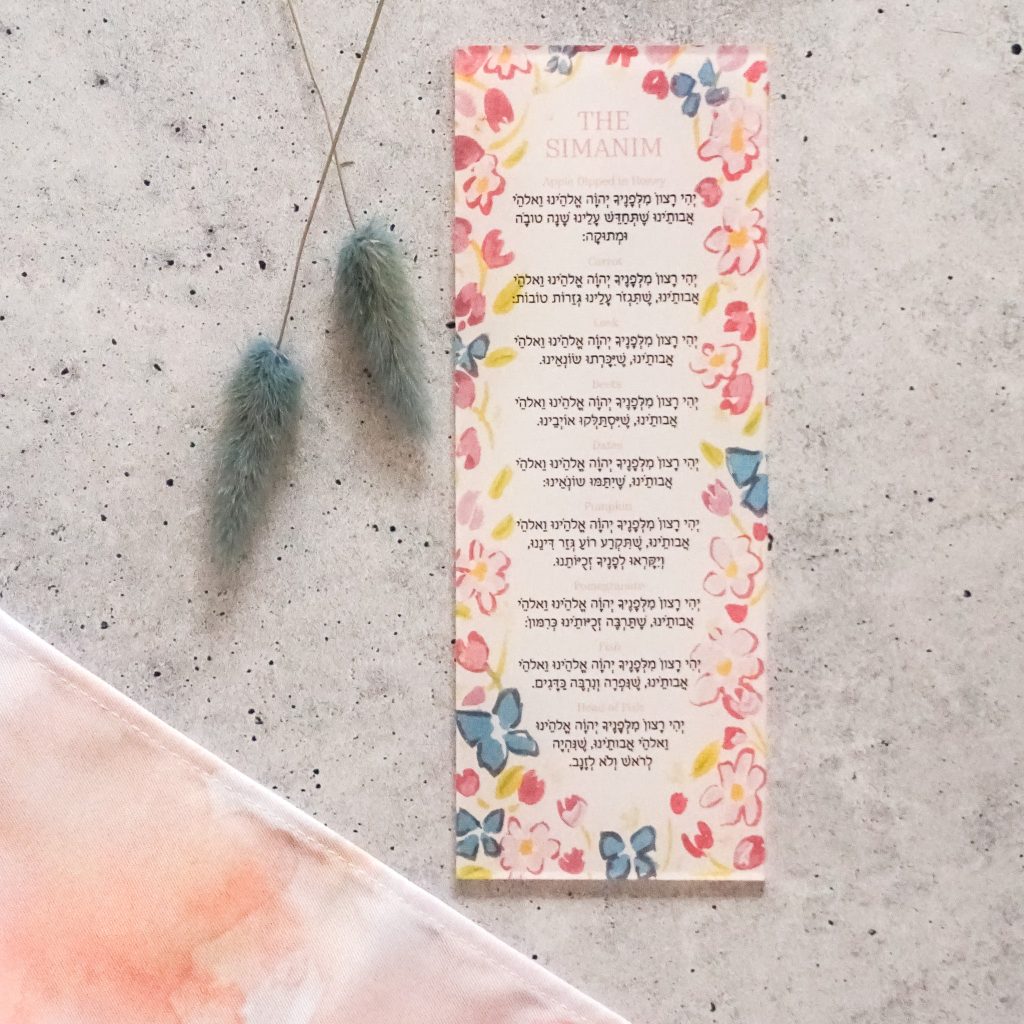 THE
SIMANIM
Apple Dipped in Honey
יְהִי רָצוֹן מִלְּפָנֶיךָ יְהוָֹה אֱלֹהֵינוּ וֵאלֹהֵי
אֲבוֹתֵינוּ שֶׁתְּחַדֵּשׁ עָלֵינוּ שָׁנָה טוֹבָה
וּמְתוּקָה:
Carrot
יְהִי רָצוֹן מִלְּפָנֶיךָ יְהוָֹה אֱלֹהֵינוּ וֵאלֹהֵי
אֲבוֹתֵינוּ, שֶׁתִּגְזֹר עָלֵינוּ גְּזֵרוֹת טוֹבוֹת:
Leek
יְהִי רָצוֹן מִלְּפָנֶיךָ יְהוָֹה אֱלֹהֵינוּ וֵאלֹהֵי
אֲבוֹתֵינוּ, שֶׁיִּכָּרְתוּ שׂוֹנְאֵינוּ.
Beets
יְהִי רָצוֹן מִלְּפָנֶיךָ יְהוָֹה אֱלֹהֵינוּ וֵאלֹהֵי
אֲבוֹתֵינוּ, שֶׁיִּסְתַּלְּקוּ אוֹיְבֵינוּ.
Dates
יְהִי רָצוֹן מִלְּפָנֶיךָ יְהוָֹה אֱלֹהֵינוּ וֵאלֹהֵי
אֲבוֹתֵינוּ, שֶׁיִתַּמּוּ שׂוֹנְאֵינוּ:
Pumpkin
יְהִי רָצוֹן מִלְּפָנֶיךָ יְהוָֹה אֱלֹהֵינוּ וֵאלֹהֵי
אֲבוֹתֵינוּ, שֶׁתִּקְרַע רוֹעַ גְּזַר דִּינֵנוּ,
וְיִקָּרְאוּ לְפָנֶיךָ זְכֻיּוֹתֵנוּ.
Pomegranate
יְהִי רָצוֹן מִלְּפָנֶיךָ יְהוָֹה אֱלֹהֵינוּ וֵאלֹהֵי
אֲבוֹתֵינוּ, שֶׁתַּרְבֶּה זְכֻיּוֹתֵינוּ כְּרִמּוֹן:
Fish
יְהִי רָצוֹן מִלְּפָנֶיךָ יְהוָֹה אֱלֹהֵינוּ וֵאלֹהֵי
אֲבוֹתֵינוּ, שֶׁנִּפְרֶה וְנִרְבֶּה כַּדָּגִים.
Head of Fish
יְהִי רָצוֹן מִלְּפָנֶיךָ יְהוָֹה אֱלֹהֵינוּ
וֵאלֹהֵי אֲבוֹתֵינוּ, שֶׁנִּהְיֶה
לְרֹאשׁ וְלֹא לְזָנָב.